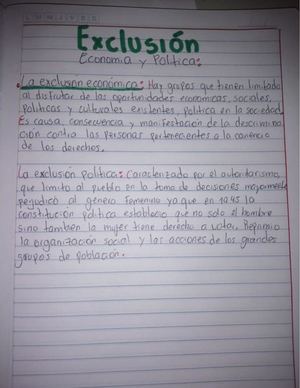 Exclusión
Economía y Política:
• La exclusion económica: Hay grupos que tienen limitado
al disfrutar de las oportunidades economicas, sociales,
políticas y culturales existentes, política en la sociedad
Es causa, consecuencia y manifestación de la descrimina
ción contra las personas pertenecientes a la carencia
de los derechos.
La exclusión política: Caracterizado por el autoritarismo,
que limito al pueblo en la toma de decisiones mayormente
perjudico al género femenino ya que en 1945 la
constitución política establecio que no solo el hombre
sino también la mujer tiene derecho a votar.
la organización social y las acciones de los grandes
grupos de población.